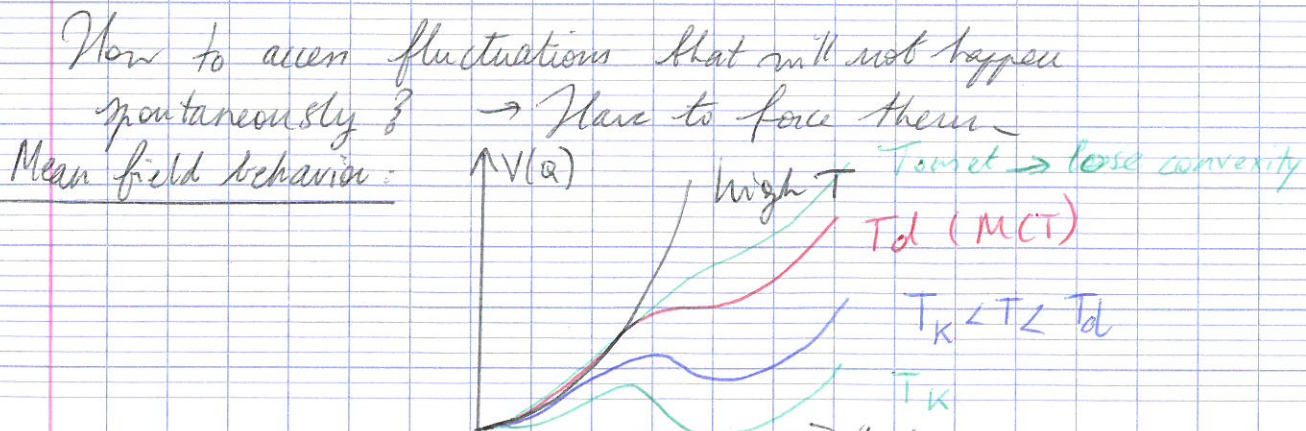 How to access fluctuations that will not happen
spontaneously ? → Have to force them
Mean field behavior:
V(Q)
high T
Tonset → loose convexity
Td (MCT)
TK < T < Td
TK